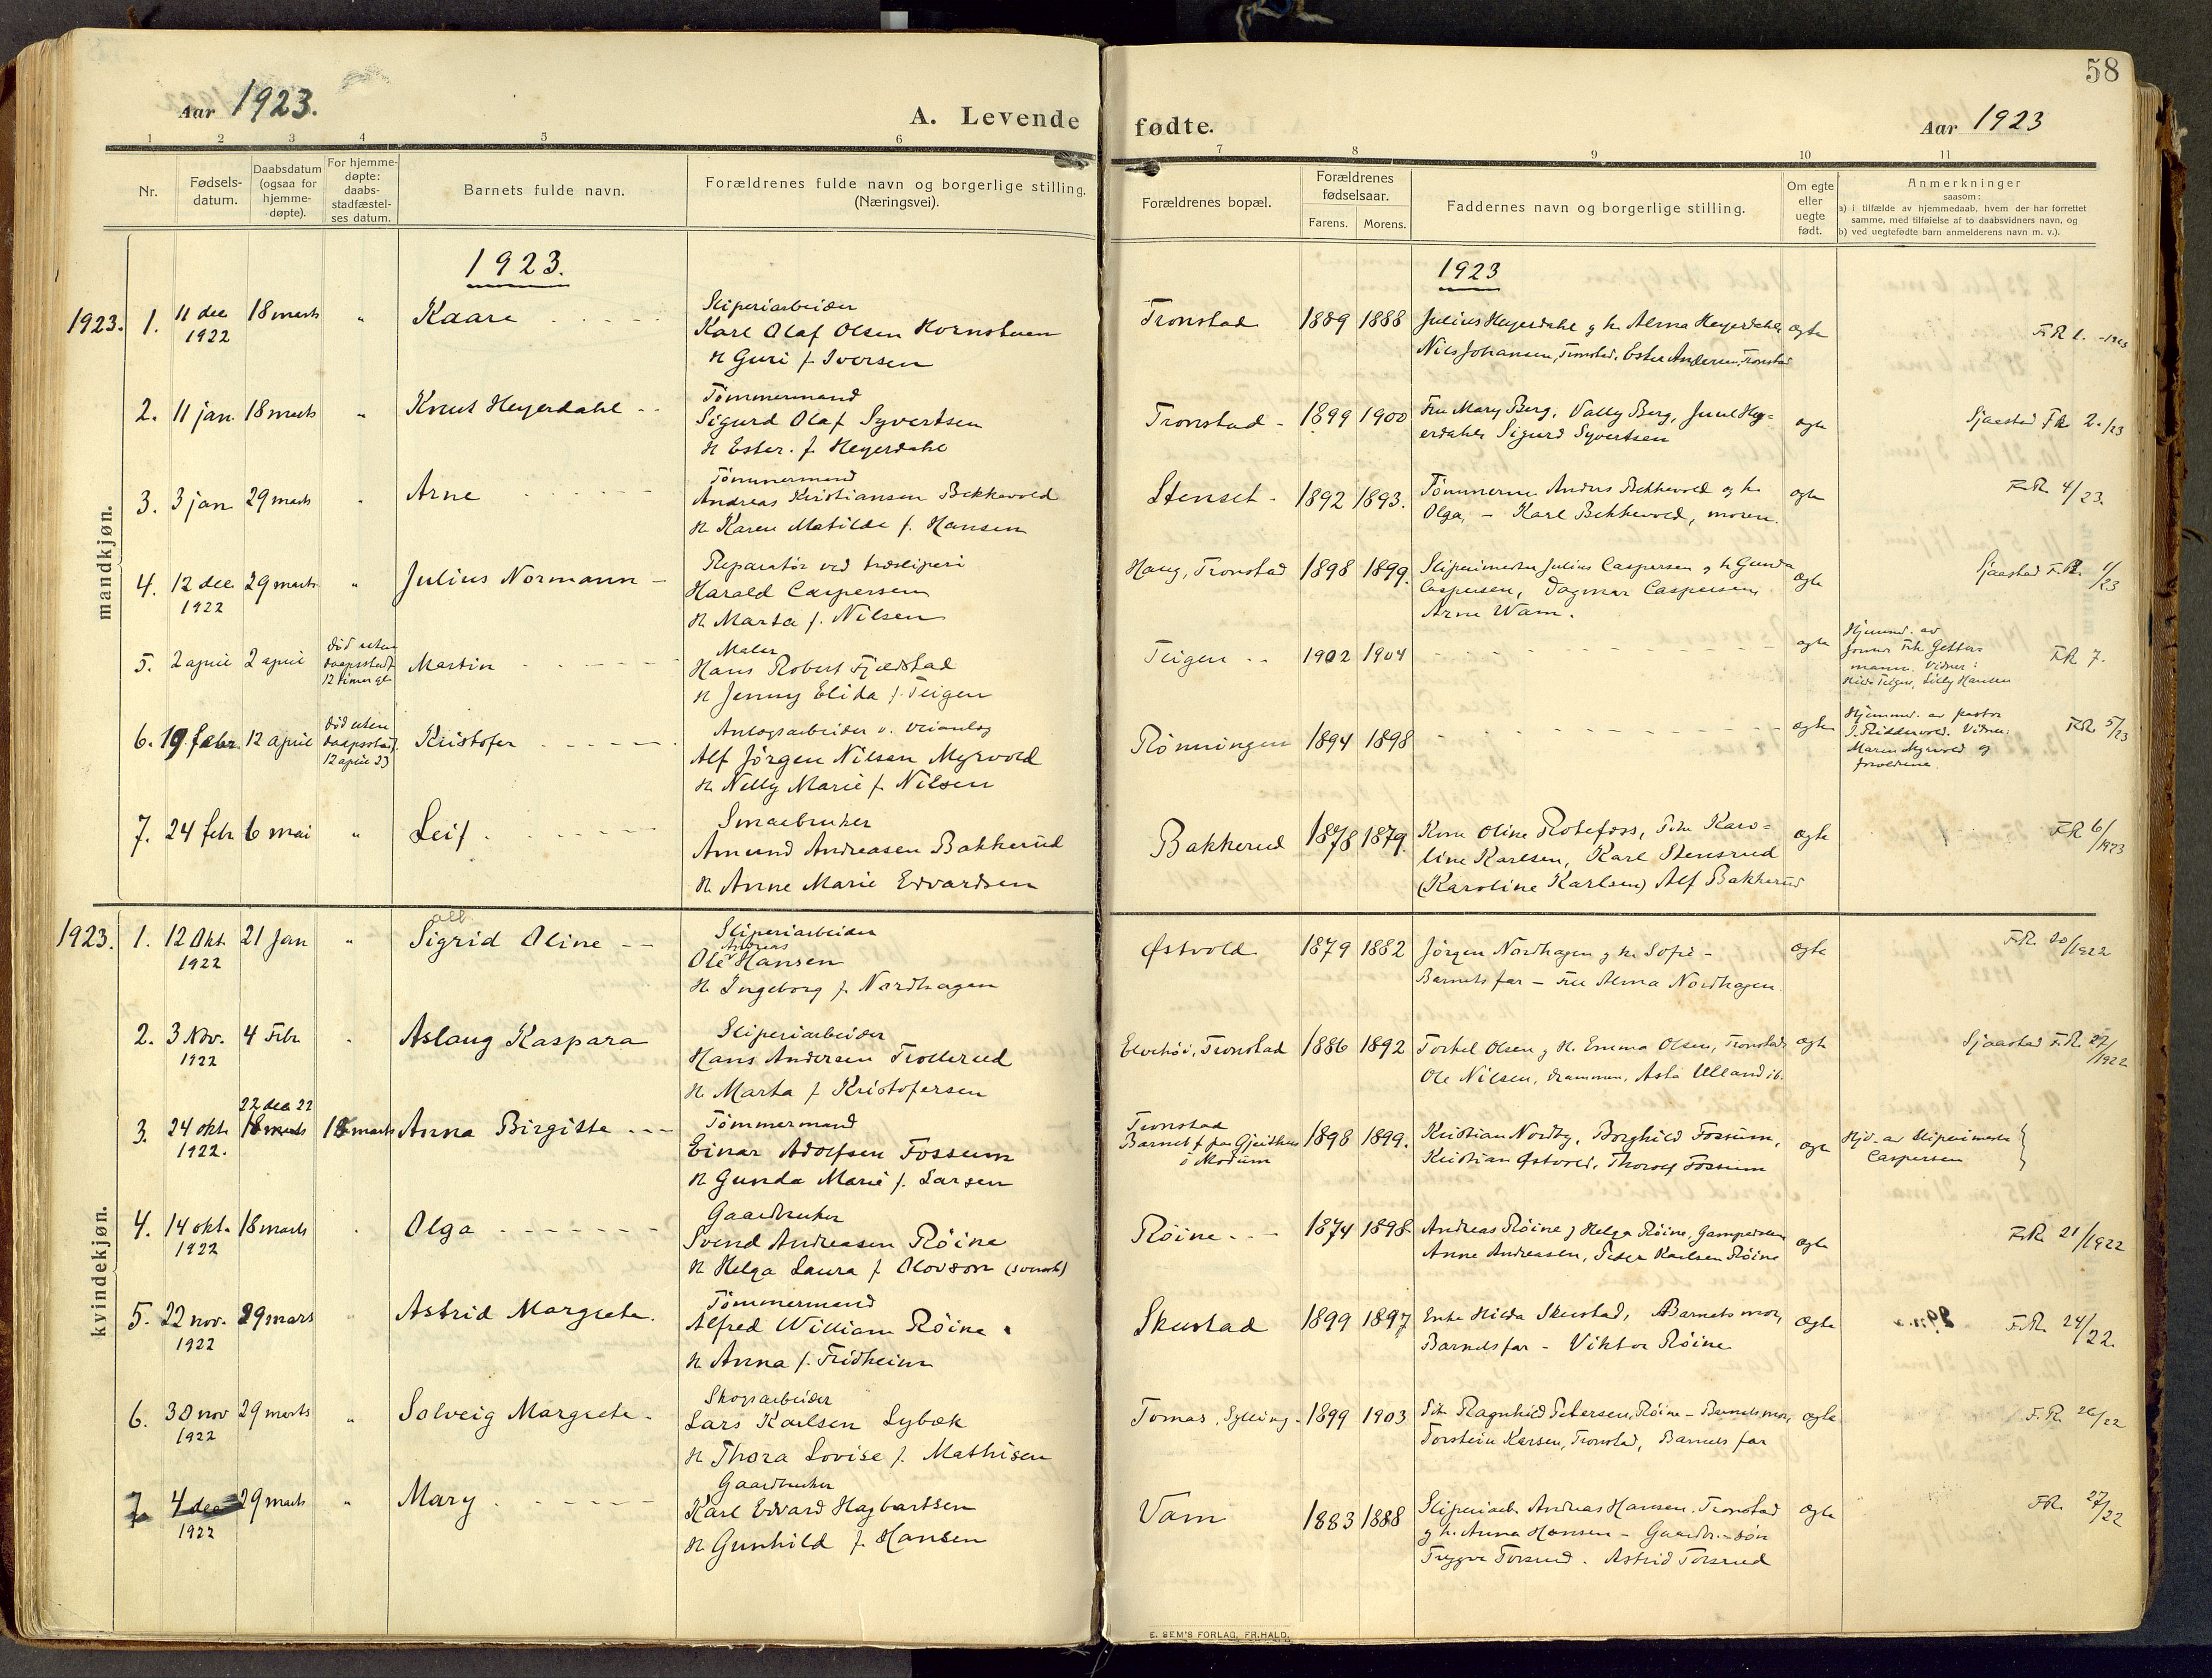 58
Aar 1923.
A. Levende fødte.
Aar 1923
1 2 3 4 5 6 7 8 9 10 11
Nr.
Fødsels-
datum.
Daabsdatum
(ogsaa for
hjemme-
døpte).
For hjemme-
døpte:
daabs-
stadfæstel-
ses datum.
Barnets fulde navn.
Forældrenes fulde navn og borgerlige stilling.
(Næringsvei).
Forældrenes bopæl.
Forældrenes
fødselsaar.
Farens. Morens.
Faddernes navn og borgerlige stilling.
Om egte
eller
uegte
født.
Anmerkninger
saasom:
a) i tilfælde av hjemmedaab, hvem der har forrettet
samme, med tilføielse af to daabsvidners navn, og
b) ved uegtefødte barn anmelderens navn m. v.).
1923.
1923
mandkjøn.
1923. 1. 11 dec
1922
18 marts
"
Kaare
Sliperiarbeider
Karl Olaf Olsen Hornstuen
H Guri f. Iversen
Tronstad
1889 1888
Julius Heyerdahl g h. Alma Heyerdahl
Nils Johansen, Tronstad, Ester Andersen, Tronstad
ægte
F.R. 1. -1923
2. 11 jan. 18 marts
"
Knut Heyerdahl
Tömmermand
Sigurd Olaf Syvertsen
H Ester. f Heyerdahl
Tronstad
1899 1900
Fru Mary Berg, Vally Berg, Juul Hey-
erdahl, Sigurd Syvertsen
ægte
Sjaastad FR 2./23
3. 3 jan 29 marts
"
Arne
Tömmermand
Andreas Kristiansen Bekkevold
H Karen Matilde f. Hansen
Stenset
1892 1893.
Tömmerm. Anders Bekkevold og h.
Olga, - Karl Bekkevold, moren.
ægte
F.R. 4/23.
4. 12 dec
1922
29 marts
"
Julius Normann
Reparatör ved træsliperi
Harald Caspersen
H. Marta f. Nilsen
Haug, Tronstad
1898 1899.
Sliperimester Julius Caspersen g h Gunda
Caspersen, Dagmar Caspersen,
Arne Wam.
ægte
Sjaastad F.R. 1/23
5. 2 april 2 april
död uten
daapsstadf.
12 timer gl
Martin
Maler
Hans Robert Fjeldstad
H Jenny Elida f. Teigen
Teigen
1902 1904
ægte
Hjemmd. av
mann. Vidner:
Hilda Teigen, Lilly Hansen
FR 7.
6. 19 febr. 12 april
död uten
daapsstadf.
12 april 23
Kristofer
Anlægsarbeider v. veianlæg
Alf Jörgen Nilsen Myrvold
H. Nelly Marie f. Nilsen
Rönningen
1894 1898
ægte
Hjemmd. av pastor
J. Riddervold. Vidner:
Maren Myrvold og
forældrene.
F.R. 5/23
7. 24 febr 6 mai
"
Leif
Smaabruker
Amund Andreasen Bakkerud
H. Anne Marie Edvardsen
Bakkerud
1878 1879.
Kone Oline Rotefoss, Frk Karo-
line Karlsen, Karl Stensrud
(Karoline Karlsen) Alf Bakkerud
ægte
FR 6/1923
kvindekjøn.
1923. 1. 12 Okt
1922
21 Jan
"
Sigrid Oline
Sliperiarbeider
Andreas
Ole Hansen
H. Ingeborg f. Nordhagen
Østvold
1879 1882
Jörgen Nordhagen g h. Sofie -
Barnets far - Fru Alma Nordhagen.
ægte
F.R. 20/1922
2. 3 Nov.
1922
4 Febr
"
Aslaug Kaspara
Sliperiarbeider
Hans Andersen Trollerud
H. Marta f Kristofersen
Elvehöi, Tronstad
1886 1892
Torkel Olsen g H. Emma Olsen, Tronstad
Ole Nilsen, Drammen, Asta Ulland ib.
ægte
Sjaastad F.R. 22/1922
22 dec 22
3. 24 okt
1922.
18 marts 18 marts
Anna Birgitte
Tömmermand
Einar Adolfsen Fossum
H Gunda Marie f. Larsen
Tronstad
Barnet f. paa Gjeithus
i Modum
1898 1899.
Kristian Nordby, Borghild Fossum,
Kristian Østvold, Thorolf Fossum
ægte
Hjd. av Sliperimester
Caspersen
4. 14 okt.
1922
18 marts
"
Olga
Gaardbruker
Svend Andreasen Röine
H Helga Laura f Olovson (svensk)
Röine
1874 1898
Andreas Röine g Helga Röine,
Anne Andreasen, Peder Karlsen Röine
ægte
F.R. 21/1922
5. 22 nov.
1922
29 mars
"
Astrid Margrete.
Tömmermand
Alfred William Röine
H Anna f. Fridheim
Skustad
1899 1897
Enke Hilda Skustad, Barnets mor,
Barnets far - Viktor Röine
ægte
F.R. 24/22.
6. 30 nov
1922
29 marts
"
Solveig Margrete
Skogsarbeider
Lars Karlsen Lybæk
H Thora Lovise f. Mathisen
Tomas, Sylling
1899 1903
Frk Ragnhild Petersen, Röine - Barnets mor,
Torstein Karsen, Tronstad, Barnets far
ægte
F.R. 26/22
7. 4 dec
1922
29 marts
"
Mary
Gaardbruker
Karl Edvard Hagbartsen
H Gunhild f Hansen
Vam
1883 1888
Sliperiarb. Andreas Hansen. Tronstad
g h. Anna Hansen - Gaardbr. sön
Trygve Torsrud. Astrid Torsrud
ægte
F.R. 27/22
E. SEM'S FORLAG, FR.HALD.